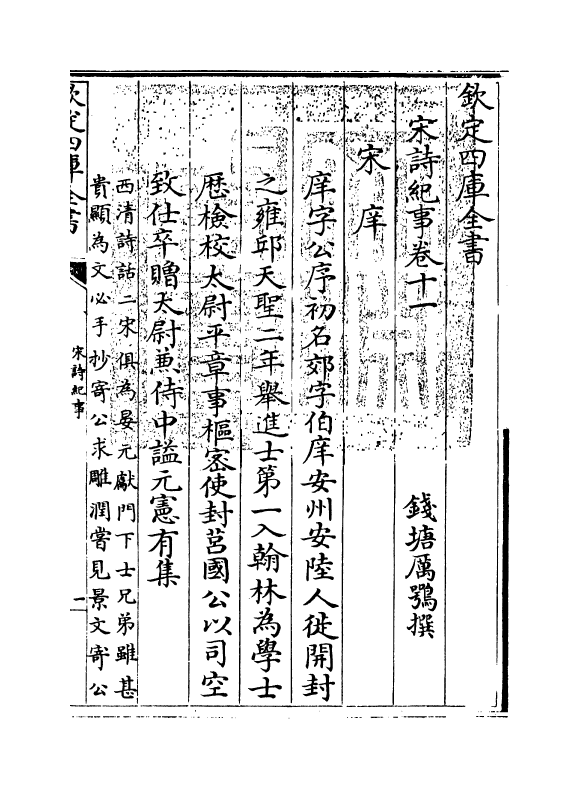 欽定四庫全書
宋詩紀事卷十一
錢塘厲鶚撰
宋庠
庠字公序初名郊字伯庠安州安陸人徙開封
之雍邱天聖二年舉進士第一入翰林為學士
厯檢校太尉平章事樞密使封莒國公以司空
致仕卒贈太尉兼侍中謚元憲有集
西清詩話二宋俱為晏元獻門下士兄弟雖甚
貴顯為文必手抄寄公求雕潤嘗見景文寄公
欽定四庫全書
宋詩紀事
一